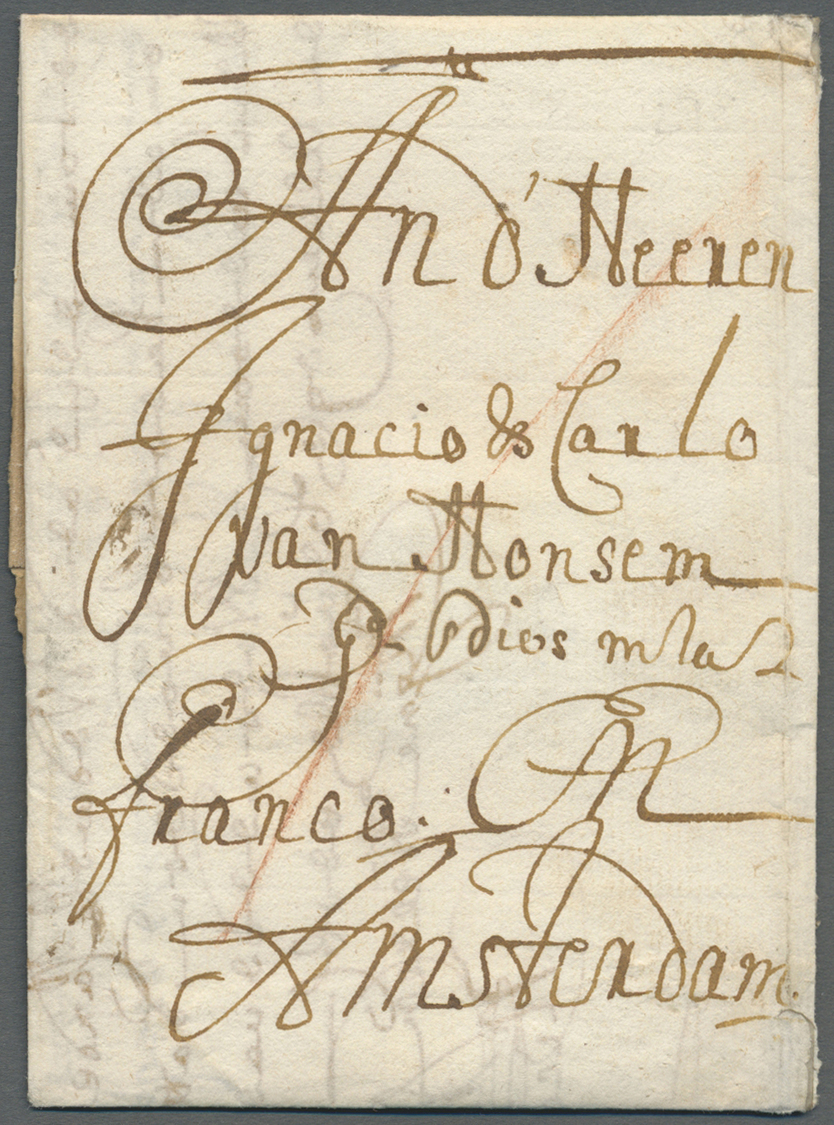 An d' Heeren
Ignacio & Carlo
van Honsem
q Dios m la
franco. In
Amsterdam.